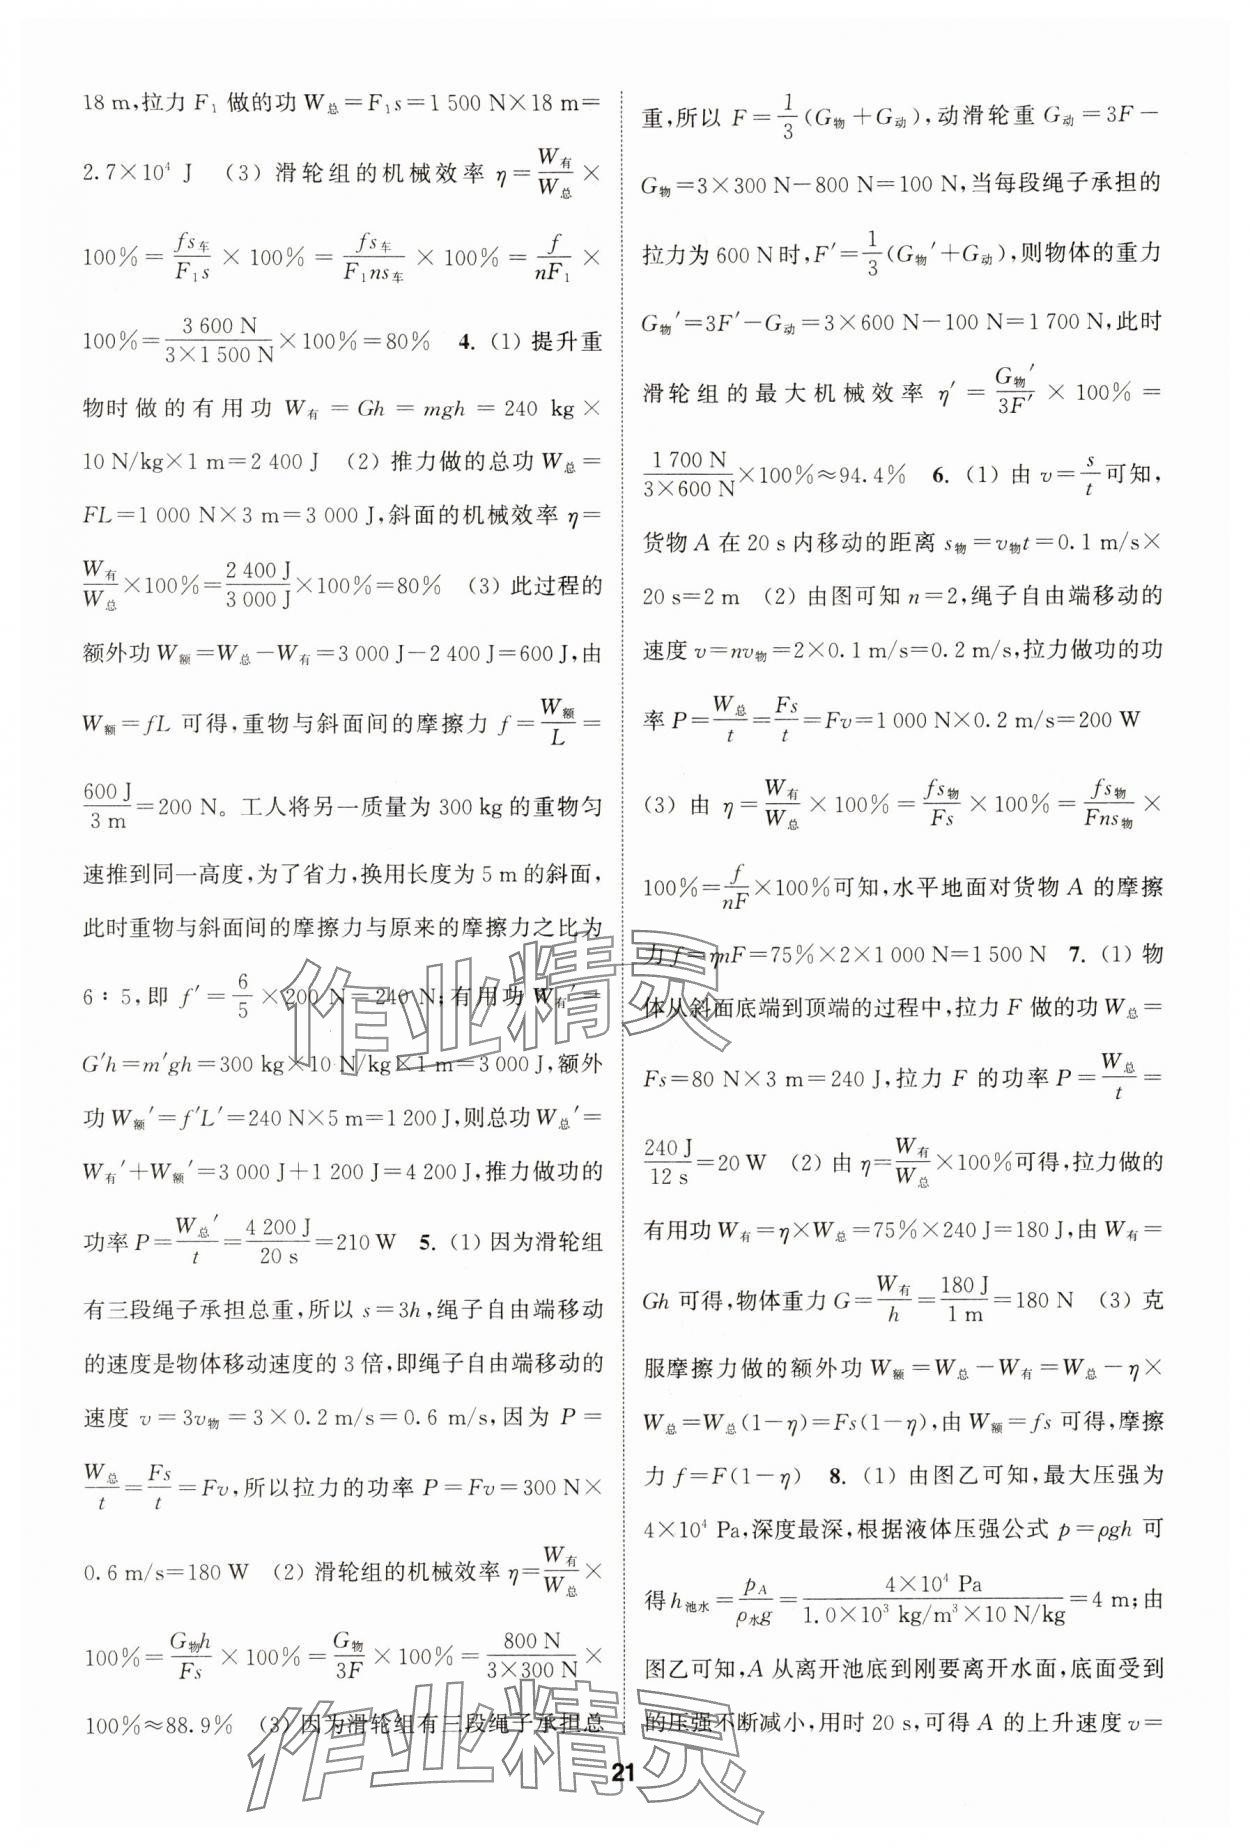 18 m,拉力 F₁ 做的功 W总=F₁s=1 500 N×18 m=
2.7×10⁴ J (3) 滑轮组的机械效率 η=W有/W总×
100%=fs车/F₁s×100%=fs车/F₁ns车×100%=f/nF₁×
100%=3 600 N/3×1 500 N×100%=80% 4. (1) 提升重
物时做的有用功 W有=Gh=mgh=240 kg×
10 N/kg×1 m=2 400 J (2) 推力做的总功 W总=
FL=1 000 N×3 m=3 000 J,斜面的机械效率 η=
W有/W总×100%=2 400 J/3 000 J×100%=80% (3) 此过程的
额外功 W额=W总-W有=3 000 J-2 400 J=600 J,由
W额=fL 可得,重物与斜面间的摩擦力 f=W额/L=
600 J/3 m=200 N。工人将另一质量为 300 kg 的重物匀
速推到同一高度,为了省力,换用长度为 5 m 的斜面,
此时重物与斜面间的摩擦力与原来的摩擦力之比为
6∶5,即 f′=6/5×200 N=240 N;有用功 W有′=
G′h=m′gh=300 kg×10 N/kg×1 m=3 000 J,额外
功 W额′=f′L′=240 N×5 m=1 200 J,则总功 W总′=
W有′+W额′=3 000 J+1 200 J=4 200 J,推力做功的
功率 P=W总′/t=4 200 J/20 s=210 W 5. (1) 因为滑轮组
有三段绳子承担总重,所以 s=3h,绳子自由端移动
的速度是物体移动速度的 3 倍,即绳子自由端移动的
速度 v=3v物=3×0.2 m/s=0.6 m/s,因为 P=
W总/t=Fs/t=Fv,所以拉力的功率 P=Fv=300 N×
0.6 m/s=180 W (2) 滑轮组的机械效率 η=W有/W总×
100%=G物h/Fs×100%=G物/3F×100%=800 N/3×300 N×
100%≈88.9% (3) 因为滑轮组有三段绳子承担总
重,所以 F=1/3(G物+G动),动滑轮重 G动=3F-
G物=3×300 N-800 N=100 N,当每段绳子承担的
拉力为 600 N 时,F′=1/3(G物′+G动),则物体的重力
G物′=3F′-G动=3×600 N-100 N=1 700 N,此时
滑轮组的最大机械效率 η′=G物′/3F′×100%=
1 700 N/3×600 N×100%≈94.4% 6. (1) 由 v=s/t可知,
货物 A 在 20 s 内移动的距离 s物=v物t=0.1 m/s×
20 s=2 m (2) 由图可知 n=2,绳子自由端移动的
速度 v=nv物=2×0.1 m/s=0.2 m/s,拉力做功的功
率 P=W总/t=Fs/t=Fv=1 000 N×0.2 m/s=200 W
(3) 由 η=W有/W总×100%=fs物/Fs×100%=fs物/Fns物×
100%=f/nF×100%可知,水平地面对货物 A 的摩擦
力 f=ηnF=75%×2×1 000 N=1 500 N 7. (1) 物
体从斜面底端到顶端的过程中,拉力 F 做的功 W总=
Fs=80 N×3 m=240 J,拉力 F 的功率 P=W总/t=
240 J/12 s=20 W (2) 由 η=W有/W总×100%可得,拉力做的
有用功 W有=η×W总=75%×240 J=180 J,由 W有=
Gh 可得,物体重力 G=W有/h=180 J/1 m=180 N (3) 克
服摩擦力做的额外功 W额=W总-W有=W总-η×
W总=W总(1-η)=Fs(1-η),由 W额=fs 可得,摩擦
力 f=F(1-η) 8. (1) 由图乙可知,最大压强为
4×10⁴ Pa,深度最深,根据液体压强公式 p=ρgh 可
得 h池水=pA/ρ水g=4×10⁴ Pa/1.0×10³ kg/m³×10 N/kg=4 m;由
图乙可知,A 从离开池底到刚要离开水面,底面受到
的压强不断减小,用时 20 s,可得 A 的上升速度 v=
21
作业精灵
作业精灵